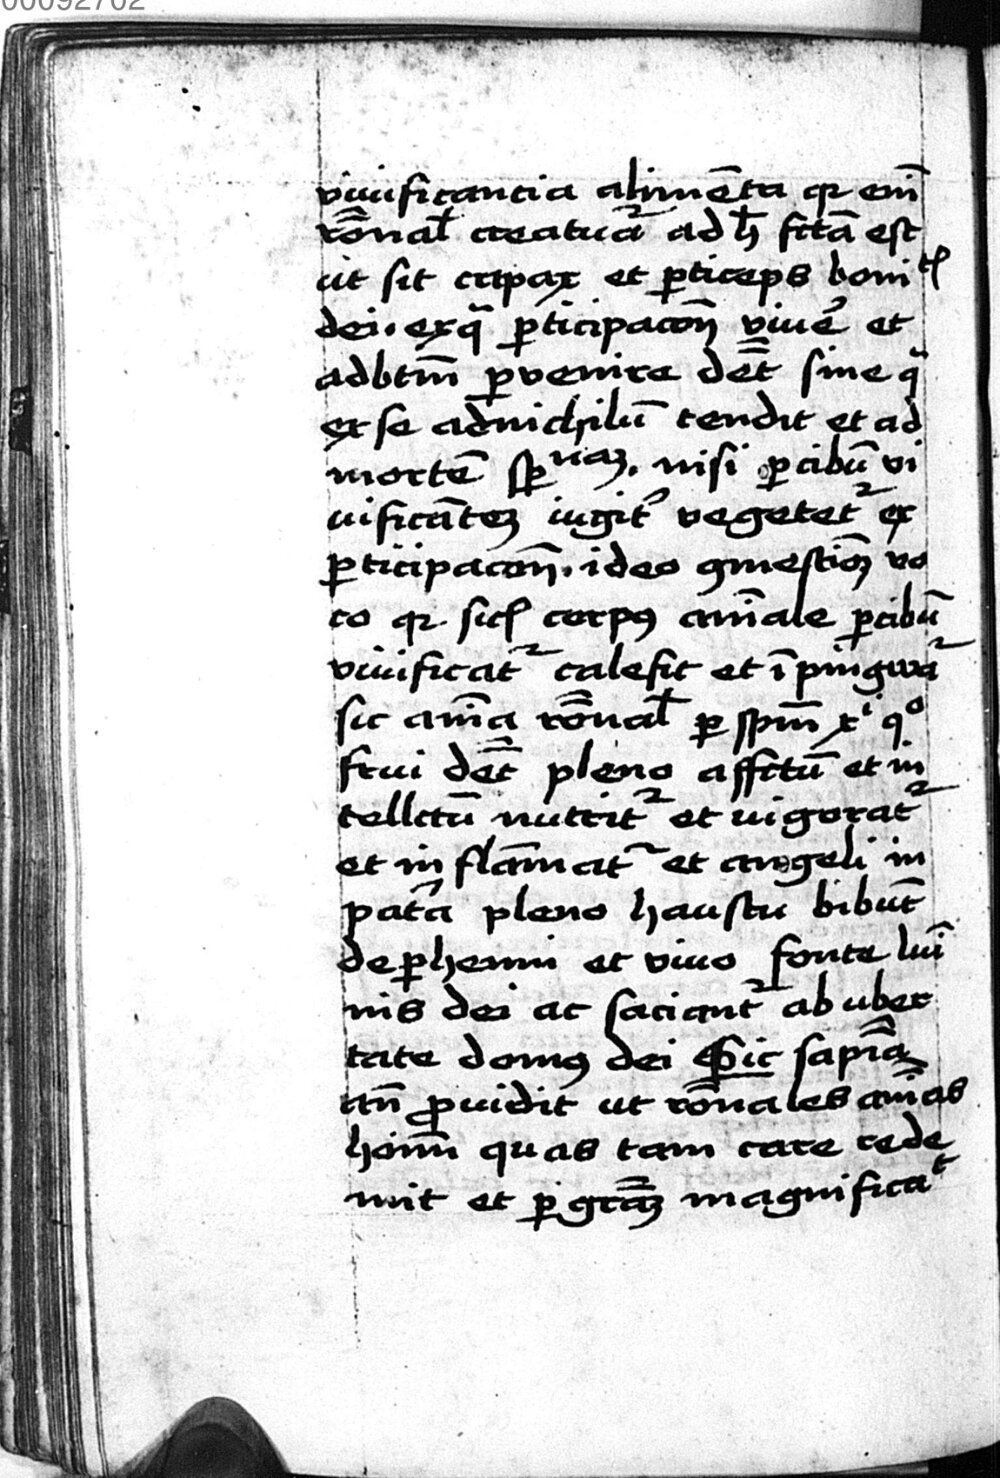 00092702
viuificancia alimēta qꝛ em̄
rōnal̄ creatuᷓa ad h̄ fc̄ta est
ut sit capax et ꝑticeps bonitꝭ
dei · ex qᷓ ꝑticipacōn̄ viuē et
ad btm̄ ꝑvenire dēt sine qᷓ
ex se ad nichilū tendit et ad
mortē sp̄uaꝫ · nisi ꝑ cibū vi
uificāteꝫ iugit᷑ vegetet᷑ ex
ꝑticipacōn̄ · ideo ꝯmestiōꝫ vo
co qꝛ sicꝭ corpꝰ aīale ꝑ cibū
viuificat᷑ calefit et īpingua᷑
sic aīa rōnal̄ ꝑ spm̄ xⁱ qᵒ
frui dēt pleno affc̄tū et in
tellc̄tū nutrit᷑ et uigorat᷑
et inflāmat᷑ et angeli in
patᷓa pleno haustu bibūt
de ꝑhenni et viuo fonte luī
nis dei ac saciant᷑ ab uber
tate domꝰ dei Sic sapīa
an̄ ꝓuidit ut rōnales aīas
hom̄ quas tam care rede
mit et ꝑ grāꝫ magnificaᵗ